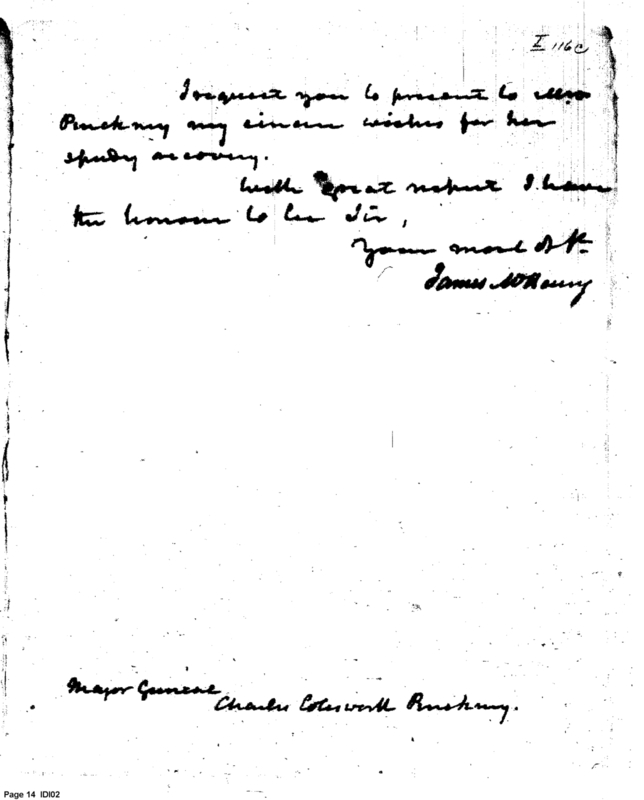 I 116c
I request you to present to Mrs
Pinckney my sincere wishes for her
speedy recovery.
With great respect I have
the honour to be Sir,
Your most
James McHenry
Major General
Charles Cotesworth Pinckney.
Page 14 IDI02